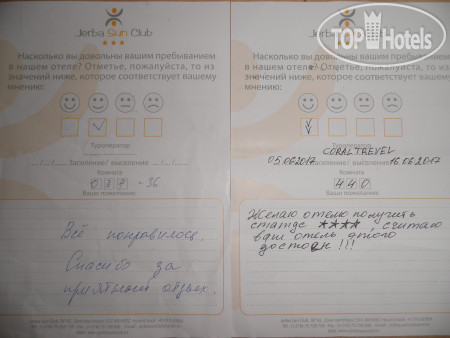 TOP Hotels
Jerba Sun Club
Насколько вы довольны вашим пребыванием
в нашем отеле? Отметье, пожалуйста, то из
значений ниже, которое соответствует вашему
мнению:
Туроператор
Заселение/ выселение
Комната
0 3 7 - 36
Ваши пожелание:
Всё понравилось.
Спасибо за
приятный отдых.
Jerba Sun Club
Насколько вы довольны вашим пребыванием
в нашем отеле? Отметье, пожалуйста, то из
значений ниже, которое соответствует вашему
мнению:
Туроператор
CORAL TREVEL
05.06.2017 Заселение/ выселение 16.06.2017
Комната
4 4 0
Ваши пожелание:
Желаю отелю получить
статус ★★★★, считаю
ваш отель этого
достоен !!!